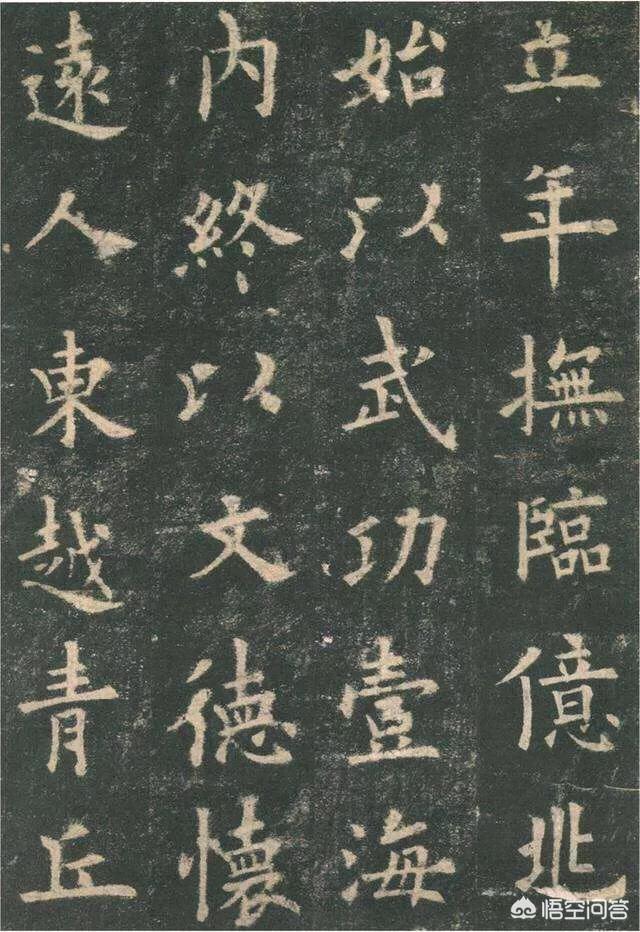 立年撫臨億兆
始以武功壹海
內終以文德懷
遠人東越青丘
悟空问答